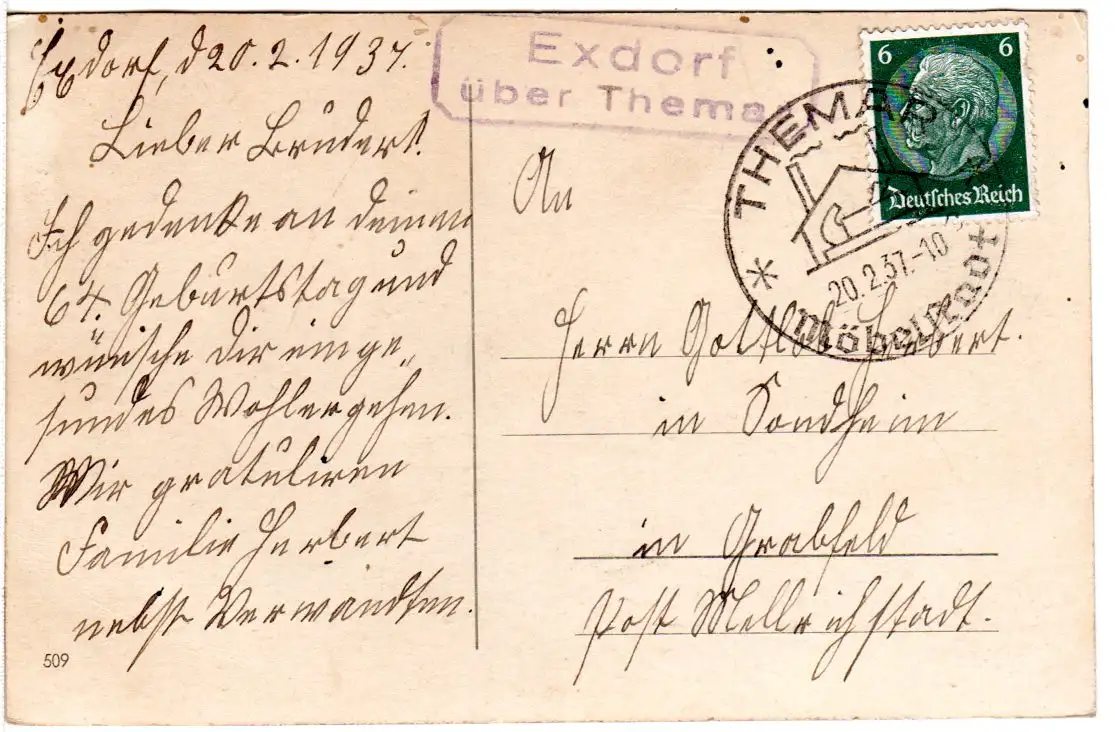 Exdorf, d 20.2.1937.
Lieber Bruder!
Ich gedenke an deinen
64. Geburtstag und
wünsche dir ein ge„
sundes Wohlergehen.
Wir gratuliren
Familie Herbert
nebst Verwandten.
509
Exdorf
über Themar
6 6
Deutsches Reich
THEMAR
20.2.37.-10
Möbelstadt
An
Herrn Gottlob Herbert.
in Sondheim
in Grabfeld
Post Mellrichstadt.